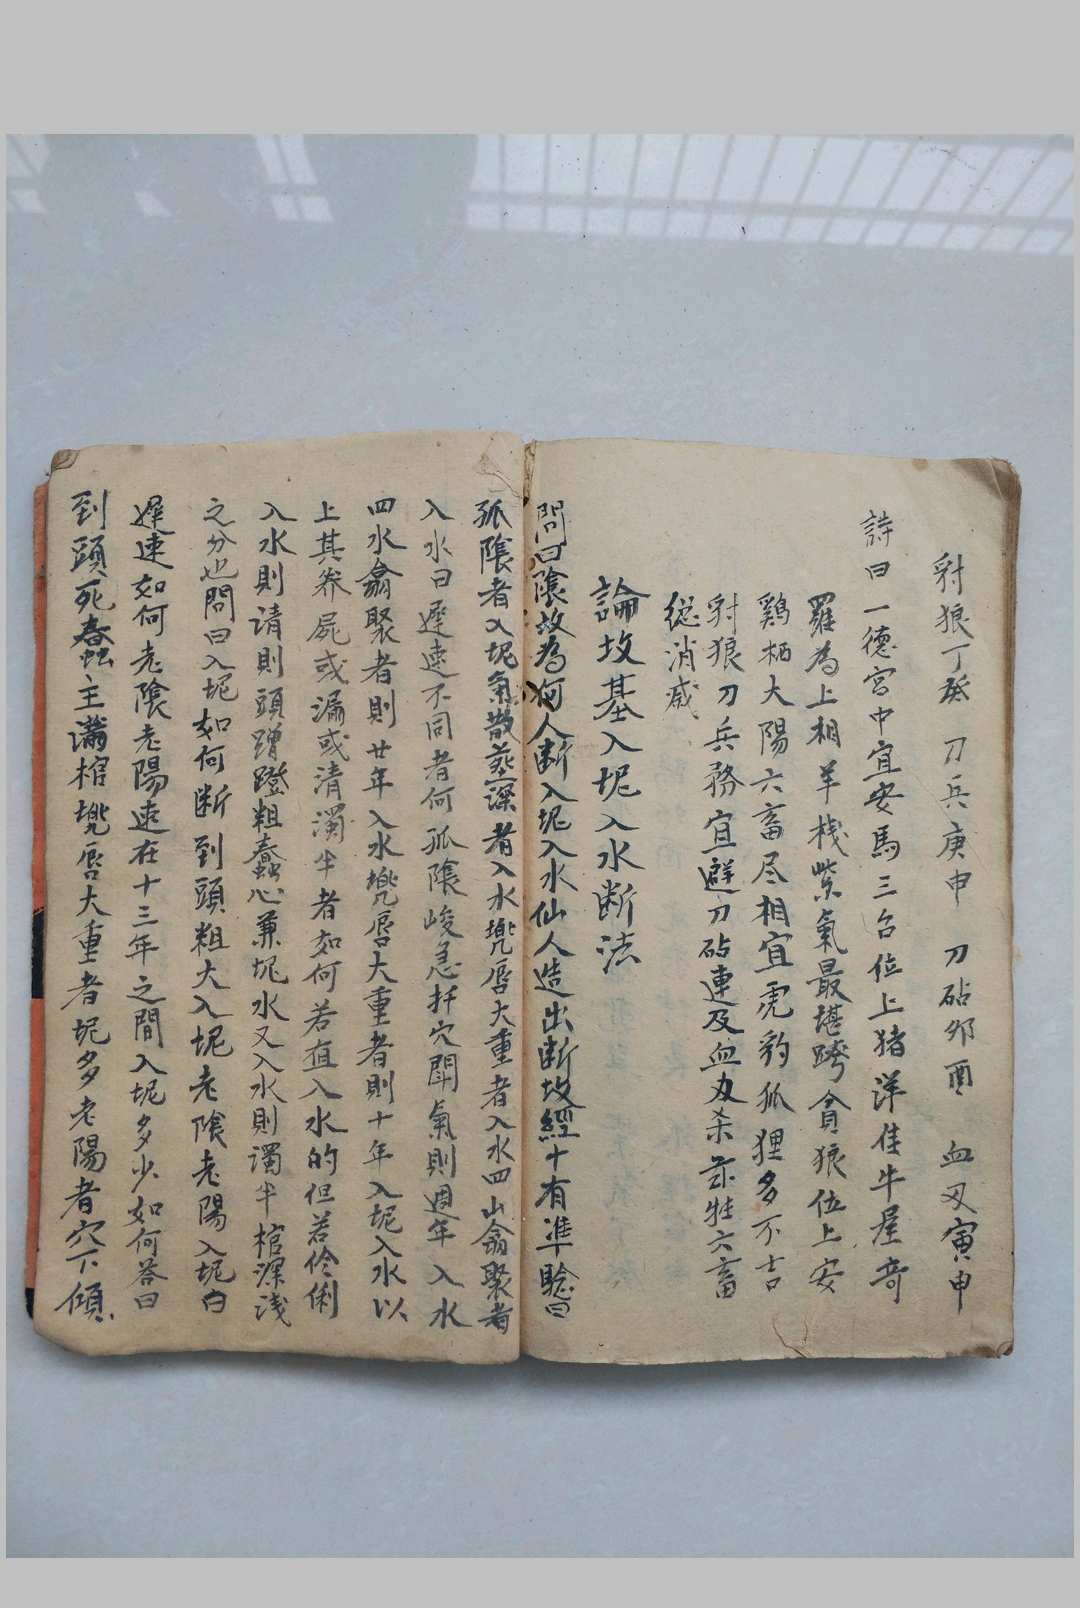 豺狼丁癸 刀兵庚申 刀砧邜酉 血刃寅申
詩曰一德宮中宜安馬三台位上猪洋佳牛屋奇
羅為上相羊栈紫氣最堪跨貪狼位上安
鷄栖大陽六畜尽相宜虎豹狐狸多不吉
豺狼刀兵務宜避刀砧連及血刃杀 牲六畜
総消威
論坟基入坭入水断法
問曰陰故為何人断入坭入水仙人造出断坟經十有準驗曰
孤陰者入坭氣散 深者入水 唇大重者入水四山翕聚者
入水曰遲速不同者何孤陰峻急扦穴閗氣則週年入水
四水翕聚者則廿年入水 唇大重者則十年入坭入水以
上其 屍或漏或清濁半者如何若直入水的但若伶俐
入水則请則頭蹭蹬粗蠢心兼坭水又入水則濁半棺深浅
之分也問曰入坭如何断到頭粗大入坭老陰老陽入坭白
遲速如何老陰老陽速在十三年之間入坭多少如何答曰
到頭死蠢主滿棺 唇大重者坭多老陽者穴下傾